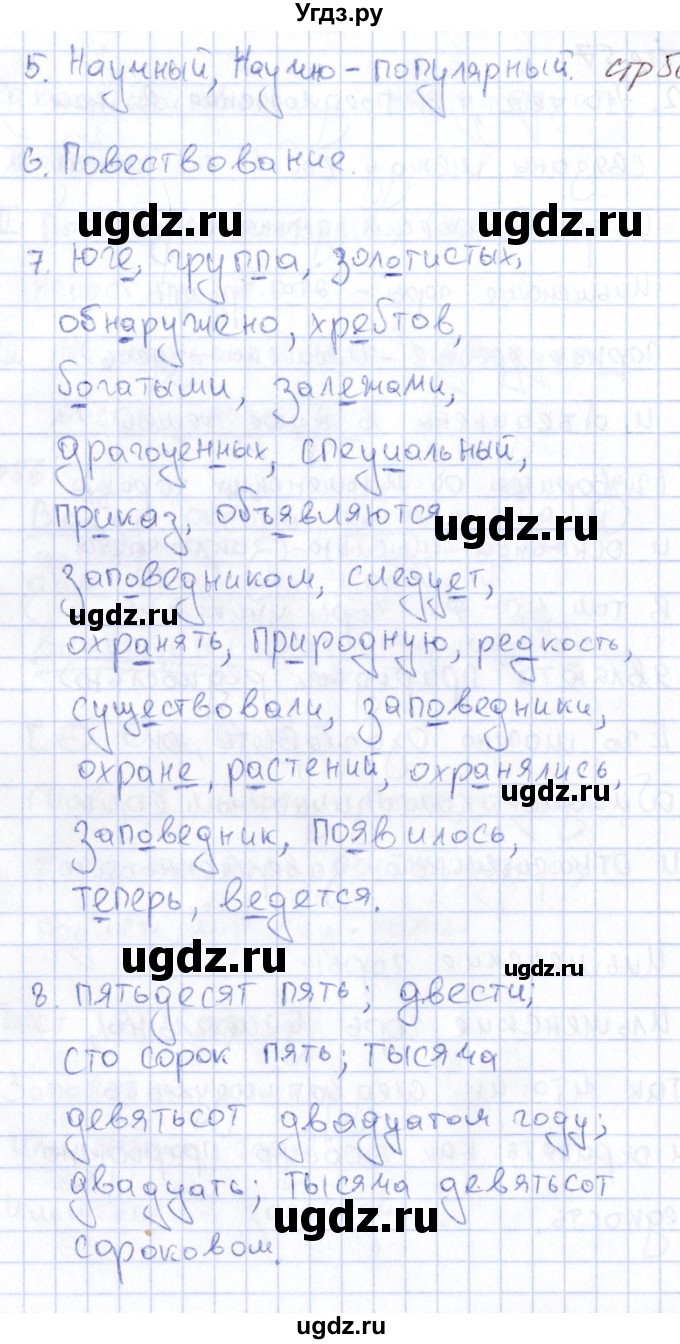 Угдз.ру
5. Научный, Научно-популярный. стр
6. Повествование.
ugdz.ru ugdz.ru
7. Юге, группа, золотистых,
обнаружено, хребтов,
богатыми, залежами,
драгоценных, специальный,
приказ, объявляются
ugdz.ru
заповедником, следует,
ugdz.ru
охранять, природную, редкость,
существовали, заповедники,
охране, растений, охранялись,
ugdz.ru
заповедник, появилось,
теперь, ведется.
ugdz.ru
8. пятьдесят пять; двести;
сто сорок пять; тысяча
девятьсот двадцатом году;
двадцать; тысяча девятьсот
ugdz.ru
сороковом.
ugdz.ru